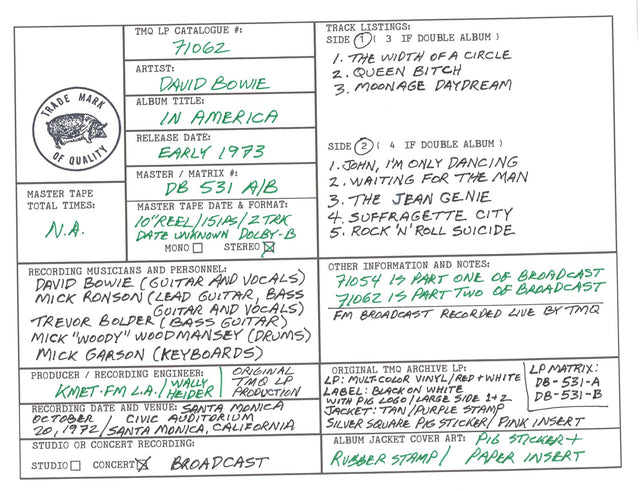 TMQ LP CATALOGUE #:
71062
ARTIST:
DAVID BOWIE
ALBUM TITLE:
IN AMERICA
RELEASE DATE:
EARLY 1973
MASTER / MATRIX #:
DB 531 A/B
TRADE MARK
OF QUALITY
MASTER TAPE
TOTAL TIMES:
N.A.
MASTER TAPE DATE & FORMAT:
10" REEL/15 IPS/2 TRK
DATE UNKNOWN DOLBY-B
MONO STEREO
TRACK LISTINGS:
SIDE 1 ( 3 IF DOUBLE ALBUM )
1. THE WIDTH OF A CIRCLE
2. QUEEN BITCH
3. MOONAGE DAYDREAM
SIDE 2 ( 4 IF DOUBLE ALBUM )
1. JOHN, I'M ONLY DANCING
2. WAITING FOR THE MAN
3. THE JEAN GENIE
4. SUFFRAGETTE CITY
5. ROCK 'N' ROLL SUICIDE
RECORDING MUSICIANS AND PERSONNEL:
DAVID BOWIE (GUITAR AND VOCALS)
MICK RONSON (LEAD GUITAR, BASS
GUITAR AND VOCALS)
TREVOR BOLDER (BASS GUITAR)
MICK "WOODY" WOODMANSEY (DRUMS)
MICK GARSON (KEYBOARDS)
OTHER INFORMATION AND NOTES:
71054 IS PART ONE OF BROADCAST
71062 IS PART TWO OF BROADCAST
FM BROADCAST RECORDED LIVE BY TMQ
PRODUCER / RECORDING ENGINEER:
KMET-FM L.A. / WALLY
HEIDER
ORIGINAL
TMQ LP
PRODUCTION
RECORDING DATE AND VENUE: SANTA MONICA
OCTOBER / CIVIC AUDITORIUM
20, 1972 / SANTA MONICA, CALIFORNIA
STUDIO OR CONCERT RECORDING:
STUDIO CONCERT BROADCAST
ORIGINAL TMQ ARCHIVE LP:
LP: MULTI-COLOR VINYL/RED+WHITE
LABEL: BLACK ON WHITE
WITH PIG LOGO/LARGE SIDE 1+2
JACKET: TAN/PURPLE STAMP
SILVER SQUARE PIG STICKER/PINK INSERT
LP MATRIX:
DB-531-A
DB-531-B
ALBUM JACKET COVER ART: PIG STICKER +
RUBBER STAMP / PAPER INSERT